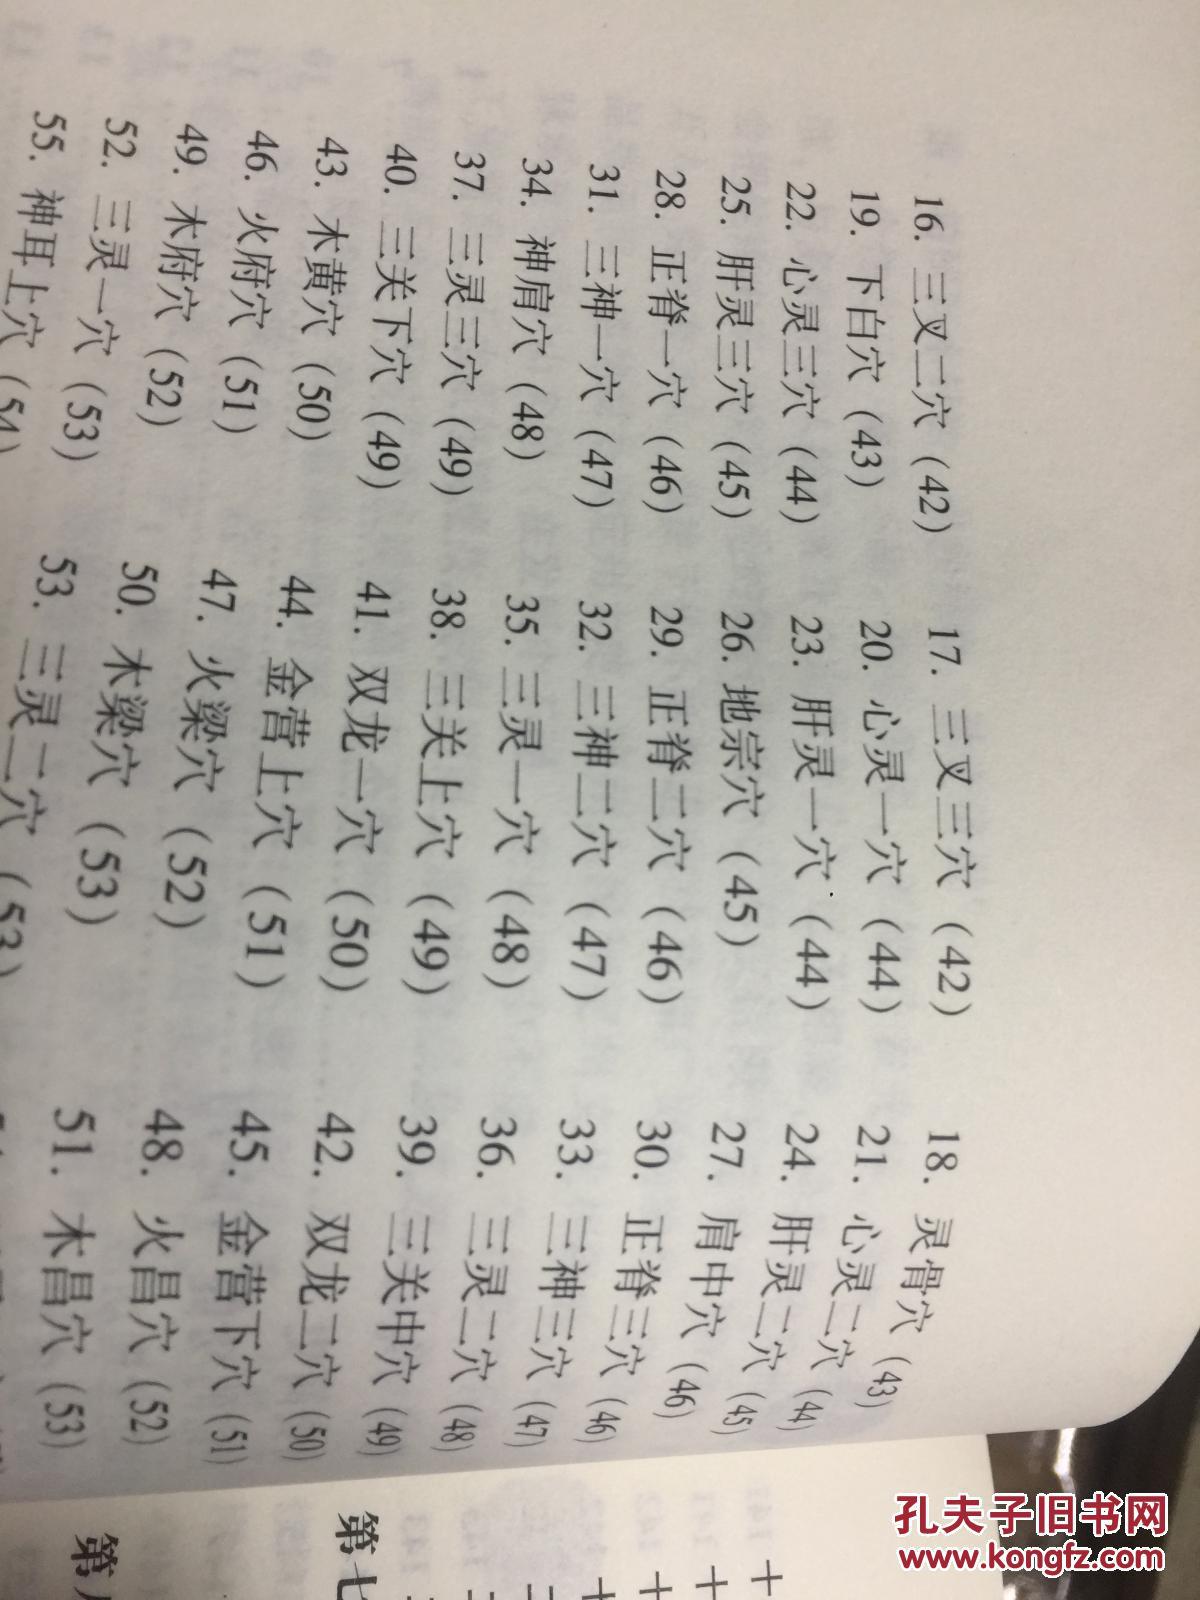 16. 三叉二穴（42） 17. 三叉三穴（42） 18. 灵骨穴（43）
19. 下白穴（43） 20. 心灵一穴（44） 21. 心灵二穴（44）
22. 心灵三穴（44） 23. 肝灵一穴（44） 24. 肝灵二穴（45）
25. 肝灵三穴（45） 26. 地宗穴（45） 27. 肩中穴（46）
28. 正脊一穴（46） 29. 正脊二穴（46） 30. 正脊三穴（46）
31. 三神一穴（47） 32. 三神二穴（47） 33. 三神三穴（47）
34. 神肩穴（48） 35. 三灵一穴（48） 36. 三灵二穴（48）
37. 三灵三穴（49） 38. 三关上穴（49） 39. 三关中穴（49）
40. 三关下穴（49） 41. 双龙一穴（50） 42. 双龙二穴（50）
43. 木黄穴（50） 44. 金营上穴（51） 45. 金营下穴（51）
46. 火府穴（51） 47. 火梁穴（52） 48. 火昌穴（52）
49. 木府穴（52） 50. 木梁穴（53） 51. 木昌穴（53）
52. 三灵一穴（53） 53. 三灵二穴（53）
55. 神耳上穴（54）
第七
第
十
十
十
十
孔夫子旧书网
www.kongfz.com